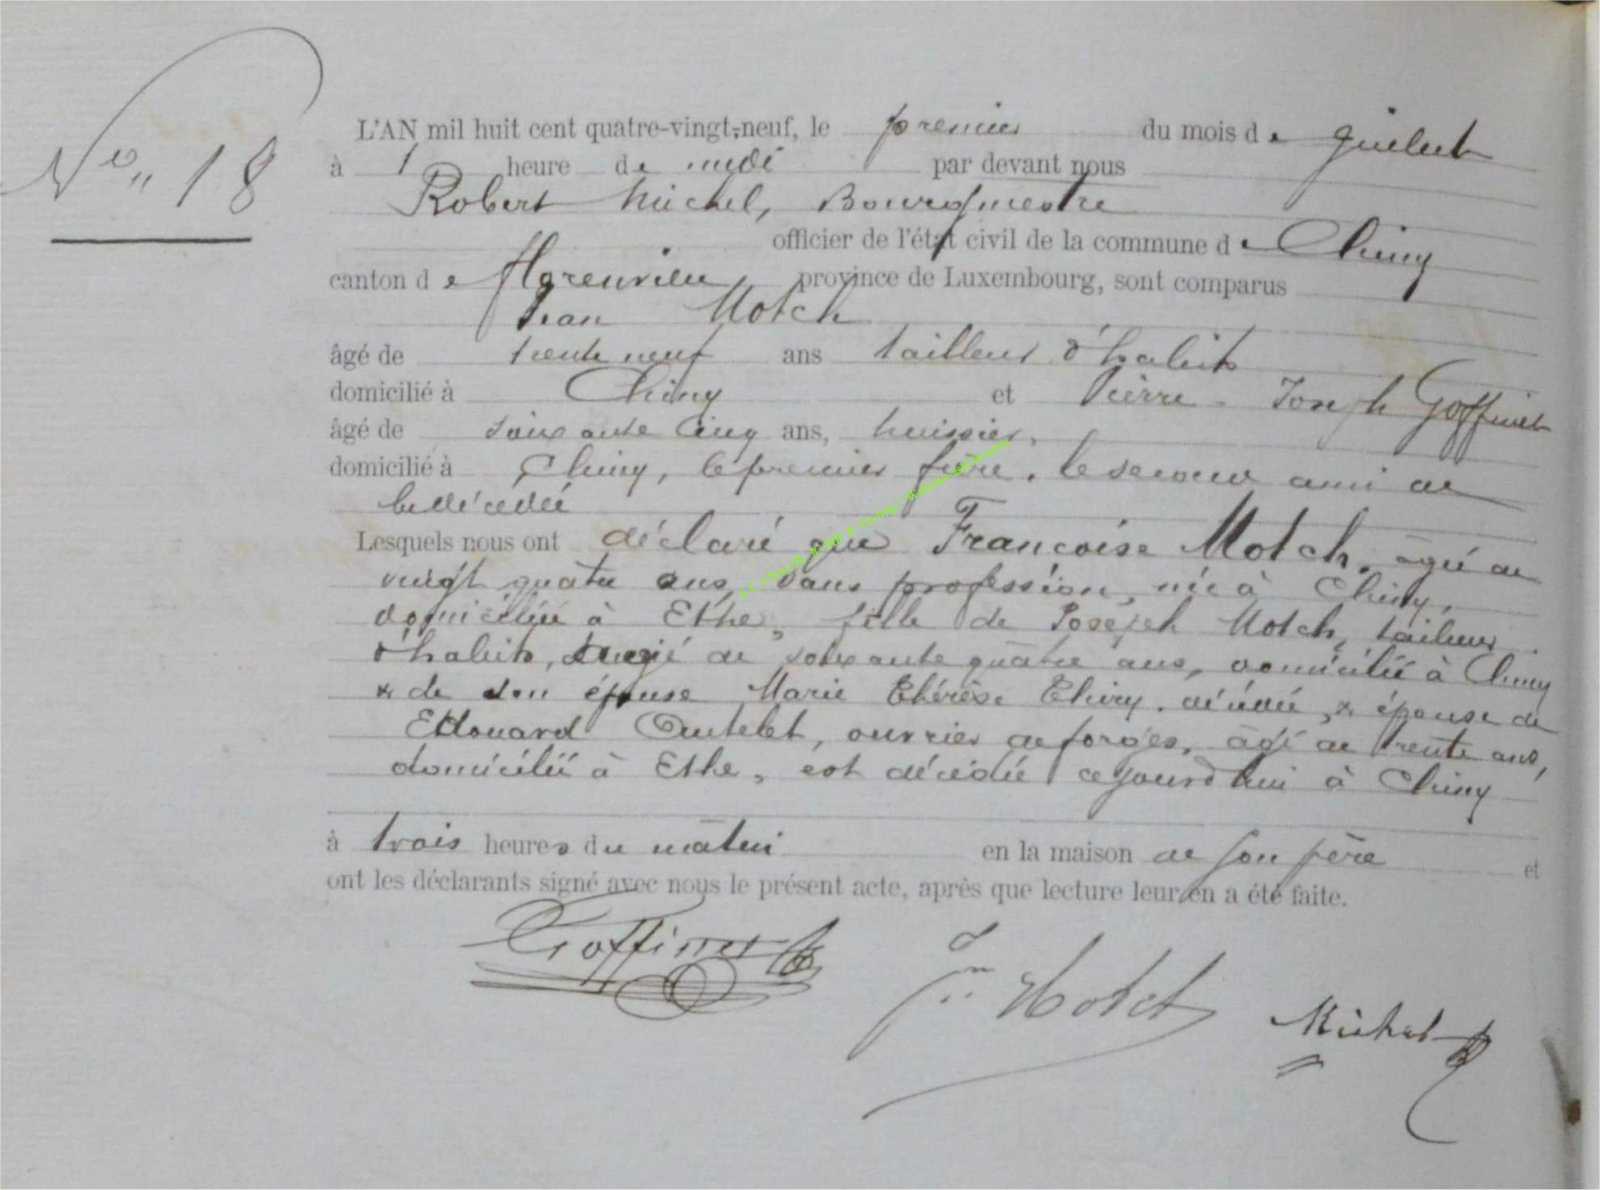 No 18
L'AN mil huit cent quatre-vingt-neuf, le premier du mois de juillet
à 1 heure de midi par devant nous
Robert Michel, Bourgmestre
officier de l'état civil de la commune de Chiny
canton de Florenville province de Luxembourg, sont comparus
Jean Motch
âgé de trente neuf ans tailleur d'habits
domicilié à Chiny et Pierre-Joseph Goffinet
âgé de soixante cinq ans, huissier,
domicilié à Chiny, le premier frère, le second ami de
la décédée
Lesquels nous ont déclaré que Françoise Motch, âgée de
vingt quatre ans, sans profession, née à Chiny,
domiciliée à Ethe, fille de Joseph Motch, tailleur
d'habits, âgé de soixante quatre ans, domicilié à Chiny
& de son épouse Marie Thérèse Thiry, décédée, & épouse de
Edouard Outelet, ouvrier de forges, âgé de trente ans,
domicilié à Ethe, est décédée ce jourd'hui à Chiny
à trois heures du matin en la maison de son père et
ont les déclarants signé avec nous le présent acte, après que lecture leur en a été faite.
Goffinet Jn Motch Michel